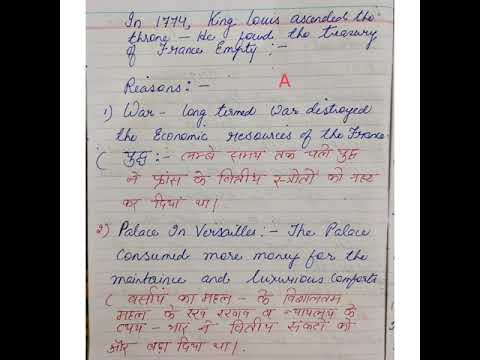 In 1774, King Louis ascended the
throne - He found the treasury
of France Empty :-
Reasons :-
A
1) War - long termed war distroyed
the Economic resources of the France
( युद्ध :- लम्बे समय तक चले युद्ध
ने फ्रांस के वित्तीय स्त्रोतों को नष्ट
कर दिया था।
2) Palace In Versailles :- The Palace
Consumed more money for the
maintaince and luxurious Comforts
( वर्साय का महल - के विशालतम
महल के रख रखाव व
व्यय - भार ने वित्तीय संकटों को
और बढ़ा दिया था।